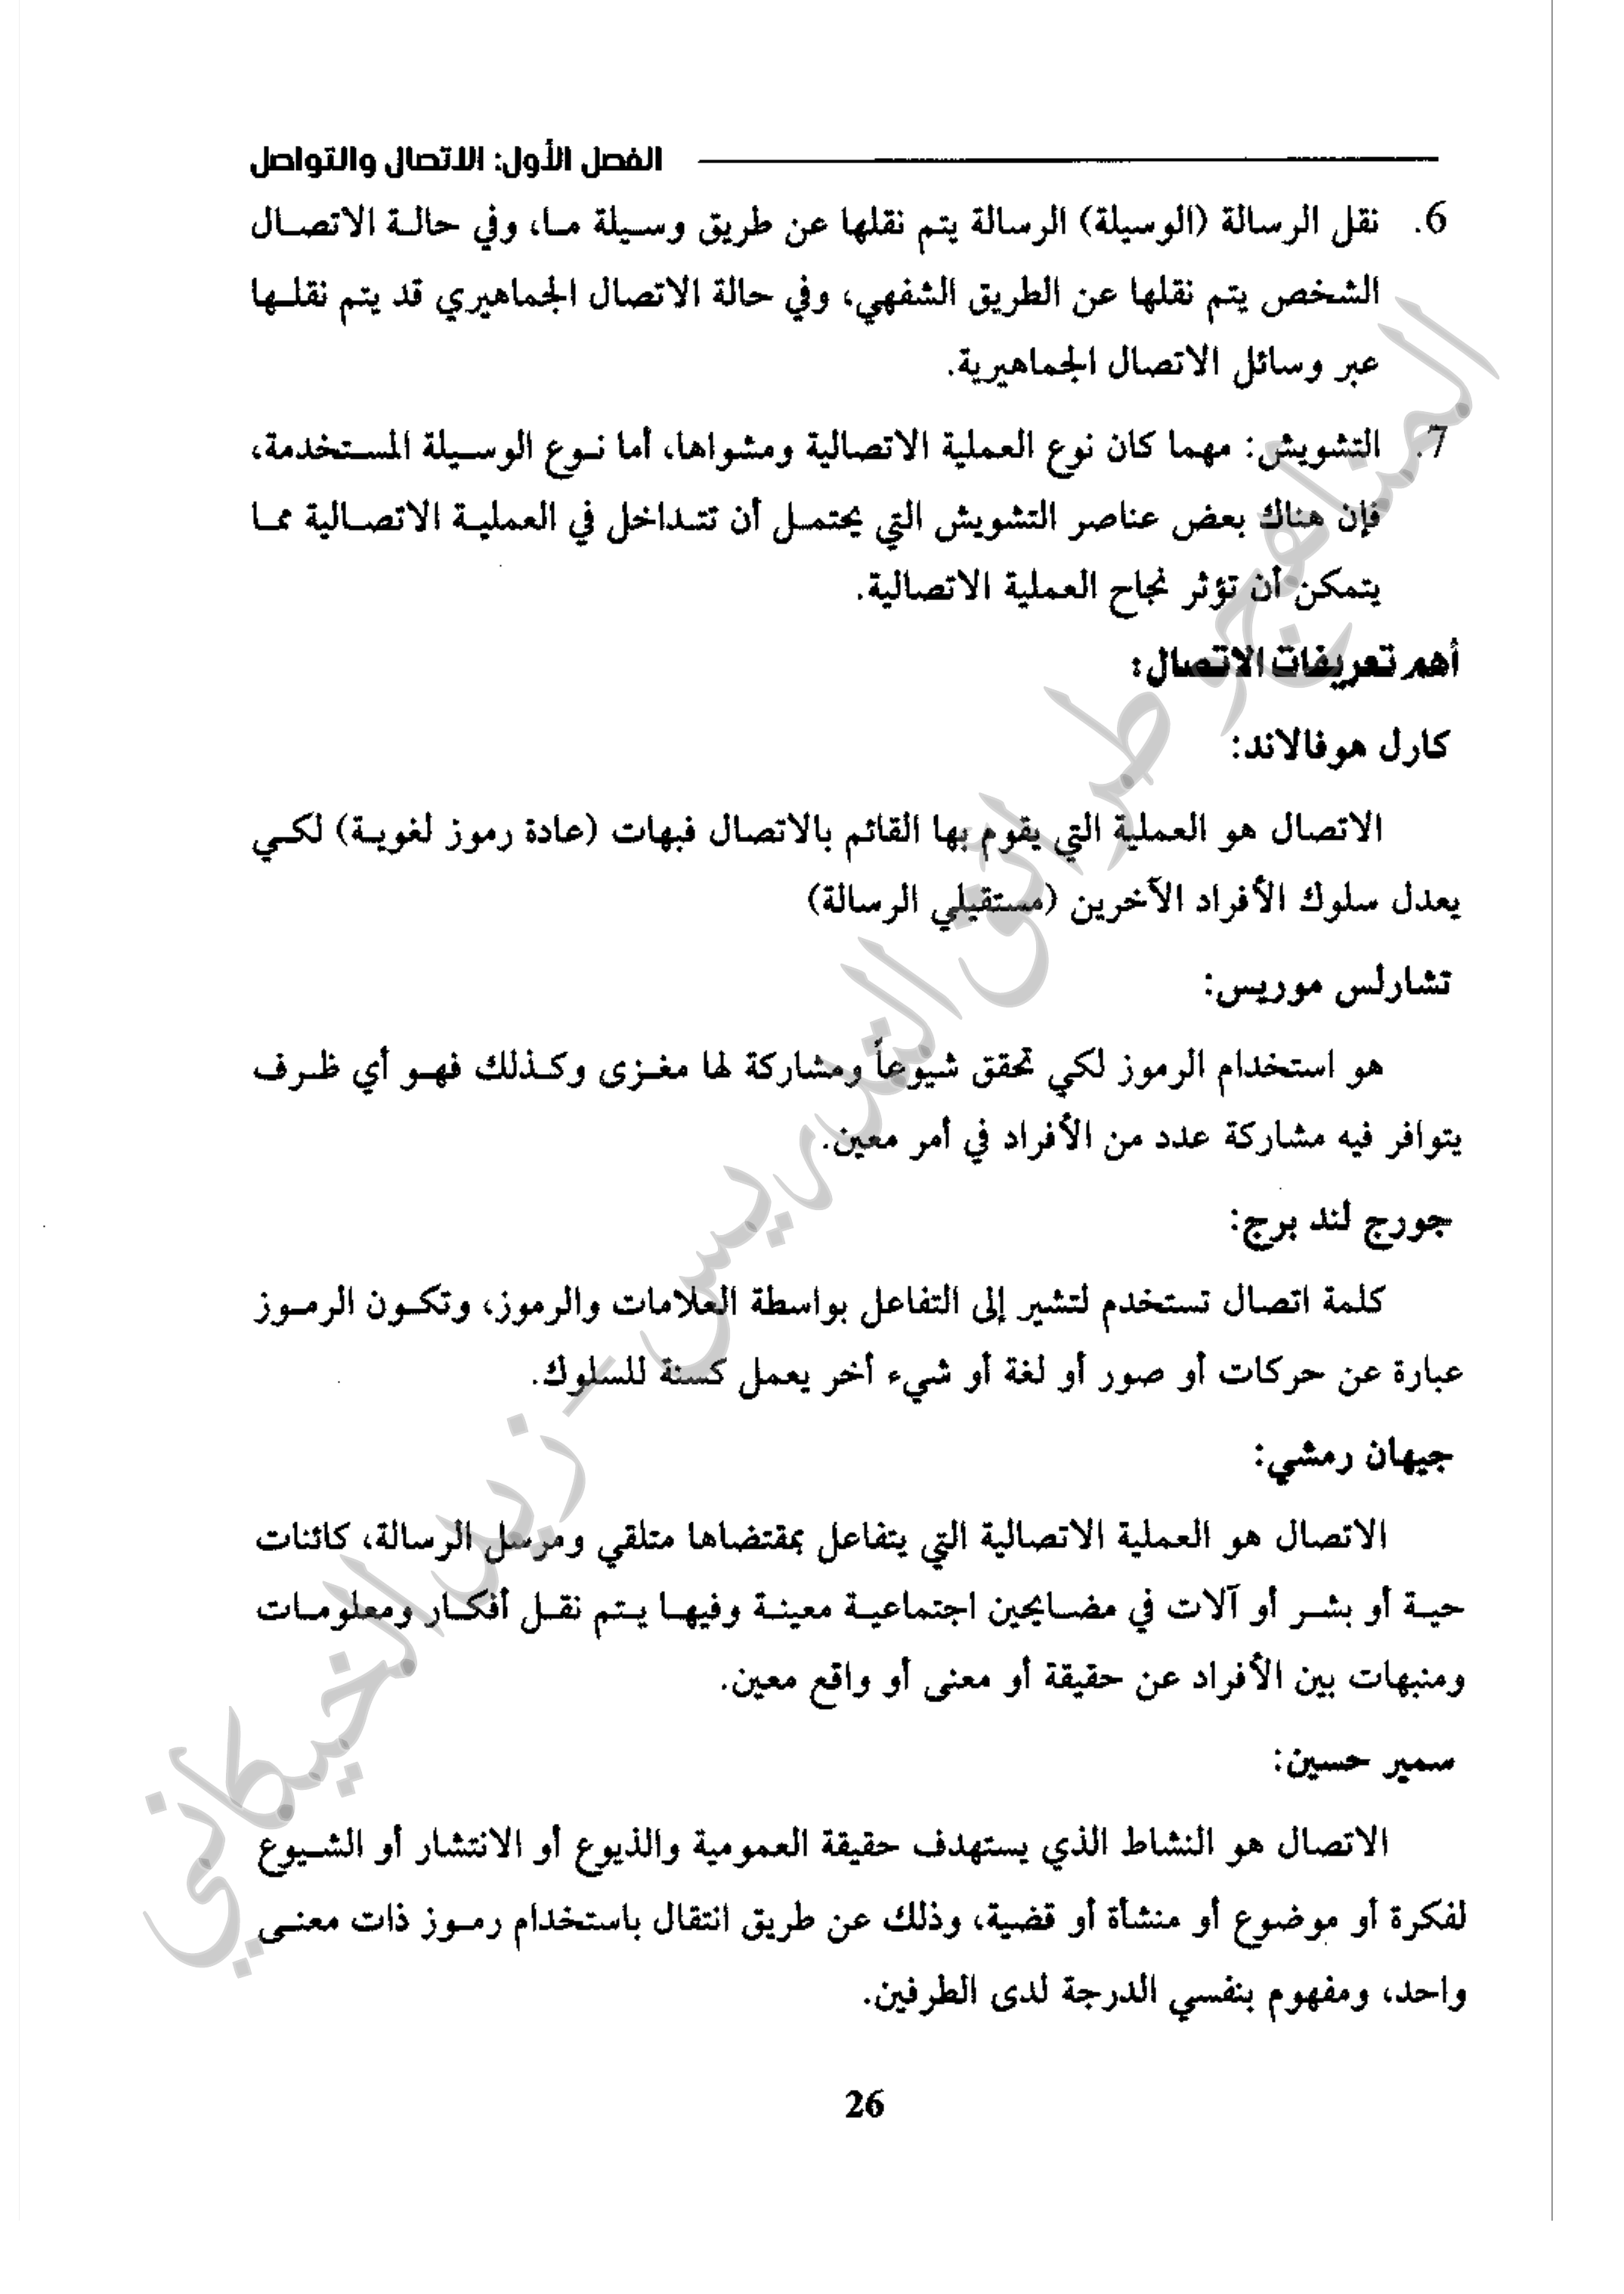 الفصل الأول: الاتصال والتواصل
6. نقل الرسالة (الوسيلة) الرسالة يتم نقلها عن طريق وسيلة ما، وفي حالة الاتصال
الشخص يتم نقلها عن الطريق الشفهي، وفي حالة الاتصال الجماهيري قد يتم نقلها
عبر وسائل الاتصال الجماهيرية.
7. التشويش: مهما كان نوع العملية الاتصالية ومشواها، أما نوع الوسيلة المستخدمة،
فإن هناك بعض عناصر التشويش التي يحتمل أن تتداخل في العملية الاتصالية مما
يتمكن أن تؤثر نجاح العملية الاتصالية.
أهم تعريفات الاتصال:
كارل هوفالاند:
الاتصال هو العملية التي يقوم بها القائم بالاتصال فبهات (عادة رموز لغوية) لكي
يعدل سلوك الأفراد الآخرين (مستقيلي الرسالة)
تشارلس موريس:
هو استخدام الرموز لكي تحقق شيوعاً ومشاركة لها مغزى وكذلك فهو أي ظرف
يتوافر فيه مشاركة عدد من الأفراد في أمر معين.
جورج لند برج:
كلمة اتصال تستخدم لتشير إلى التفاعل بواسطة العلامات والرموز، وتكون الرموز
عبارة عن حركات أو صور أو لغة أو شيء أخر يعمل كسنة للسلوك.
جيهان رمشي:
الاتصال هو العملية الاتصالية التي يتفاعل بمقتضاها متلقي ومرسل الرسالة، كائنات
حية أو بشر أو آلات في مضايجين اجتماعية معينة وفيها يتم نقل أفكار ومعلومات
ومنبهات بين الأفراد عن حقيقة أو معنى أو واقع معين.
سمير حسين:
الاتصال هو النشاط الذي يستهدف حقيقة العمومية والذيوع أو الانتشار أو الشيوع
لفكرة أو موضوع أو منشأة أو قضية، وذلك عن طريق انتقال باستخدام رموز ذات معنى
واحد، ومفهوم بنفسي الدرجة لدى الطرفين.
26
المناهج و طرائق التدريس - زيد الخيكاني